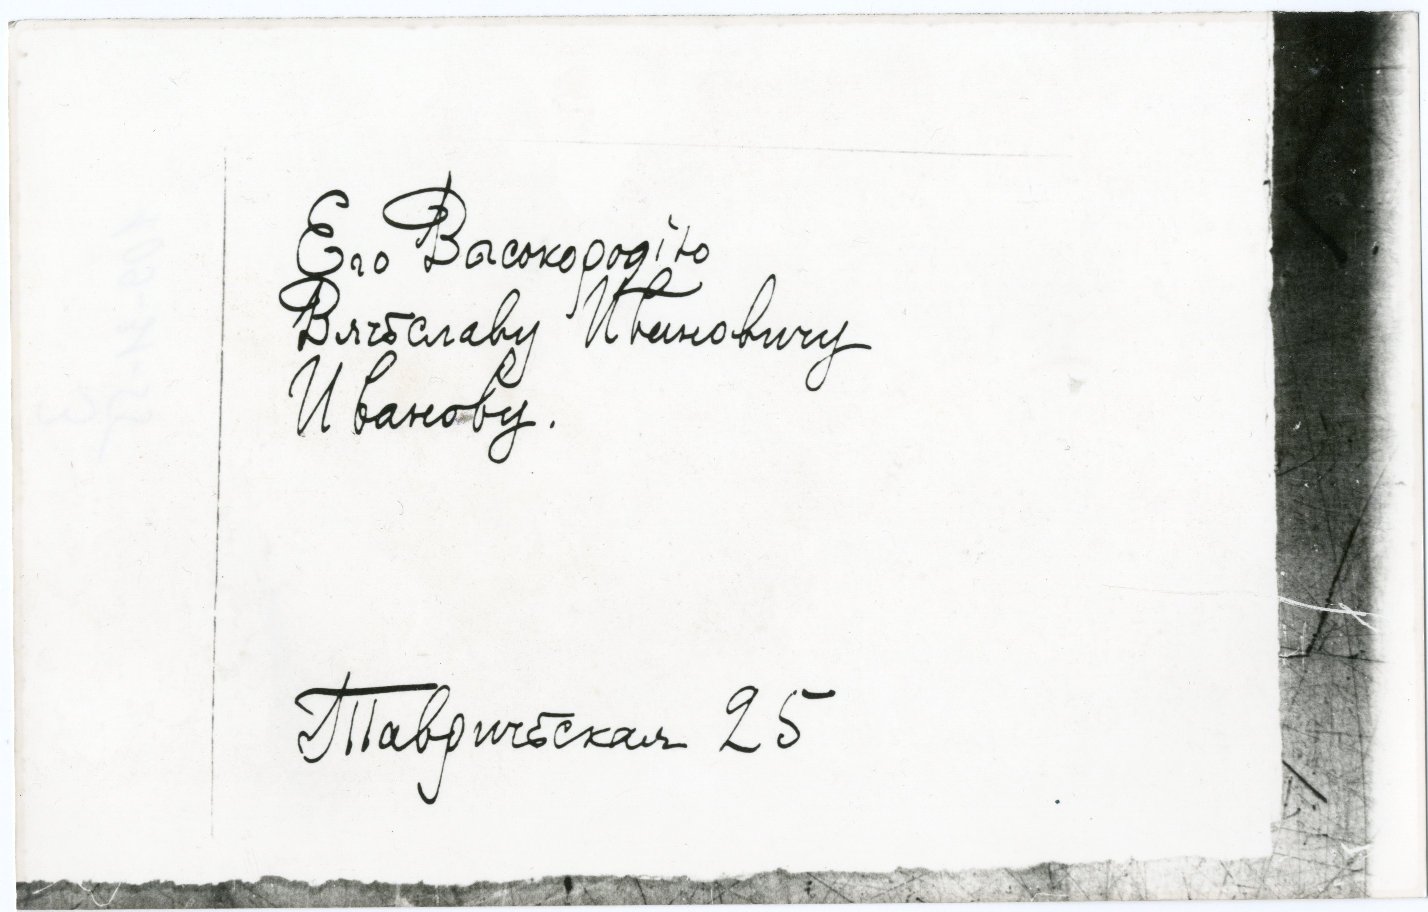 Его Высокородію
Вячеславу Ивановичу
Иванову.
Таврическая 25